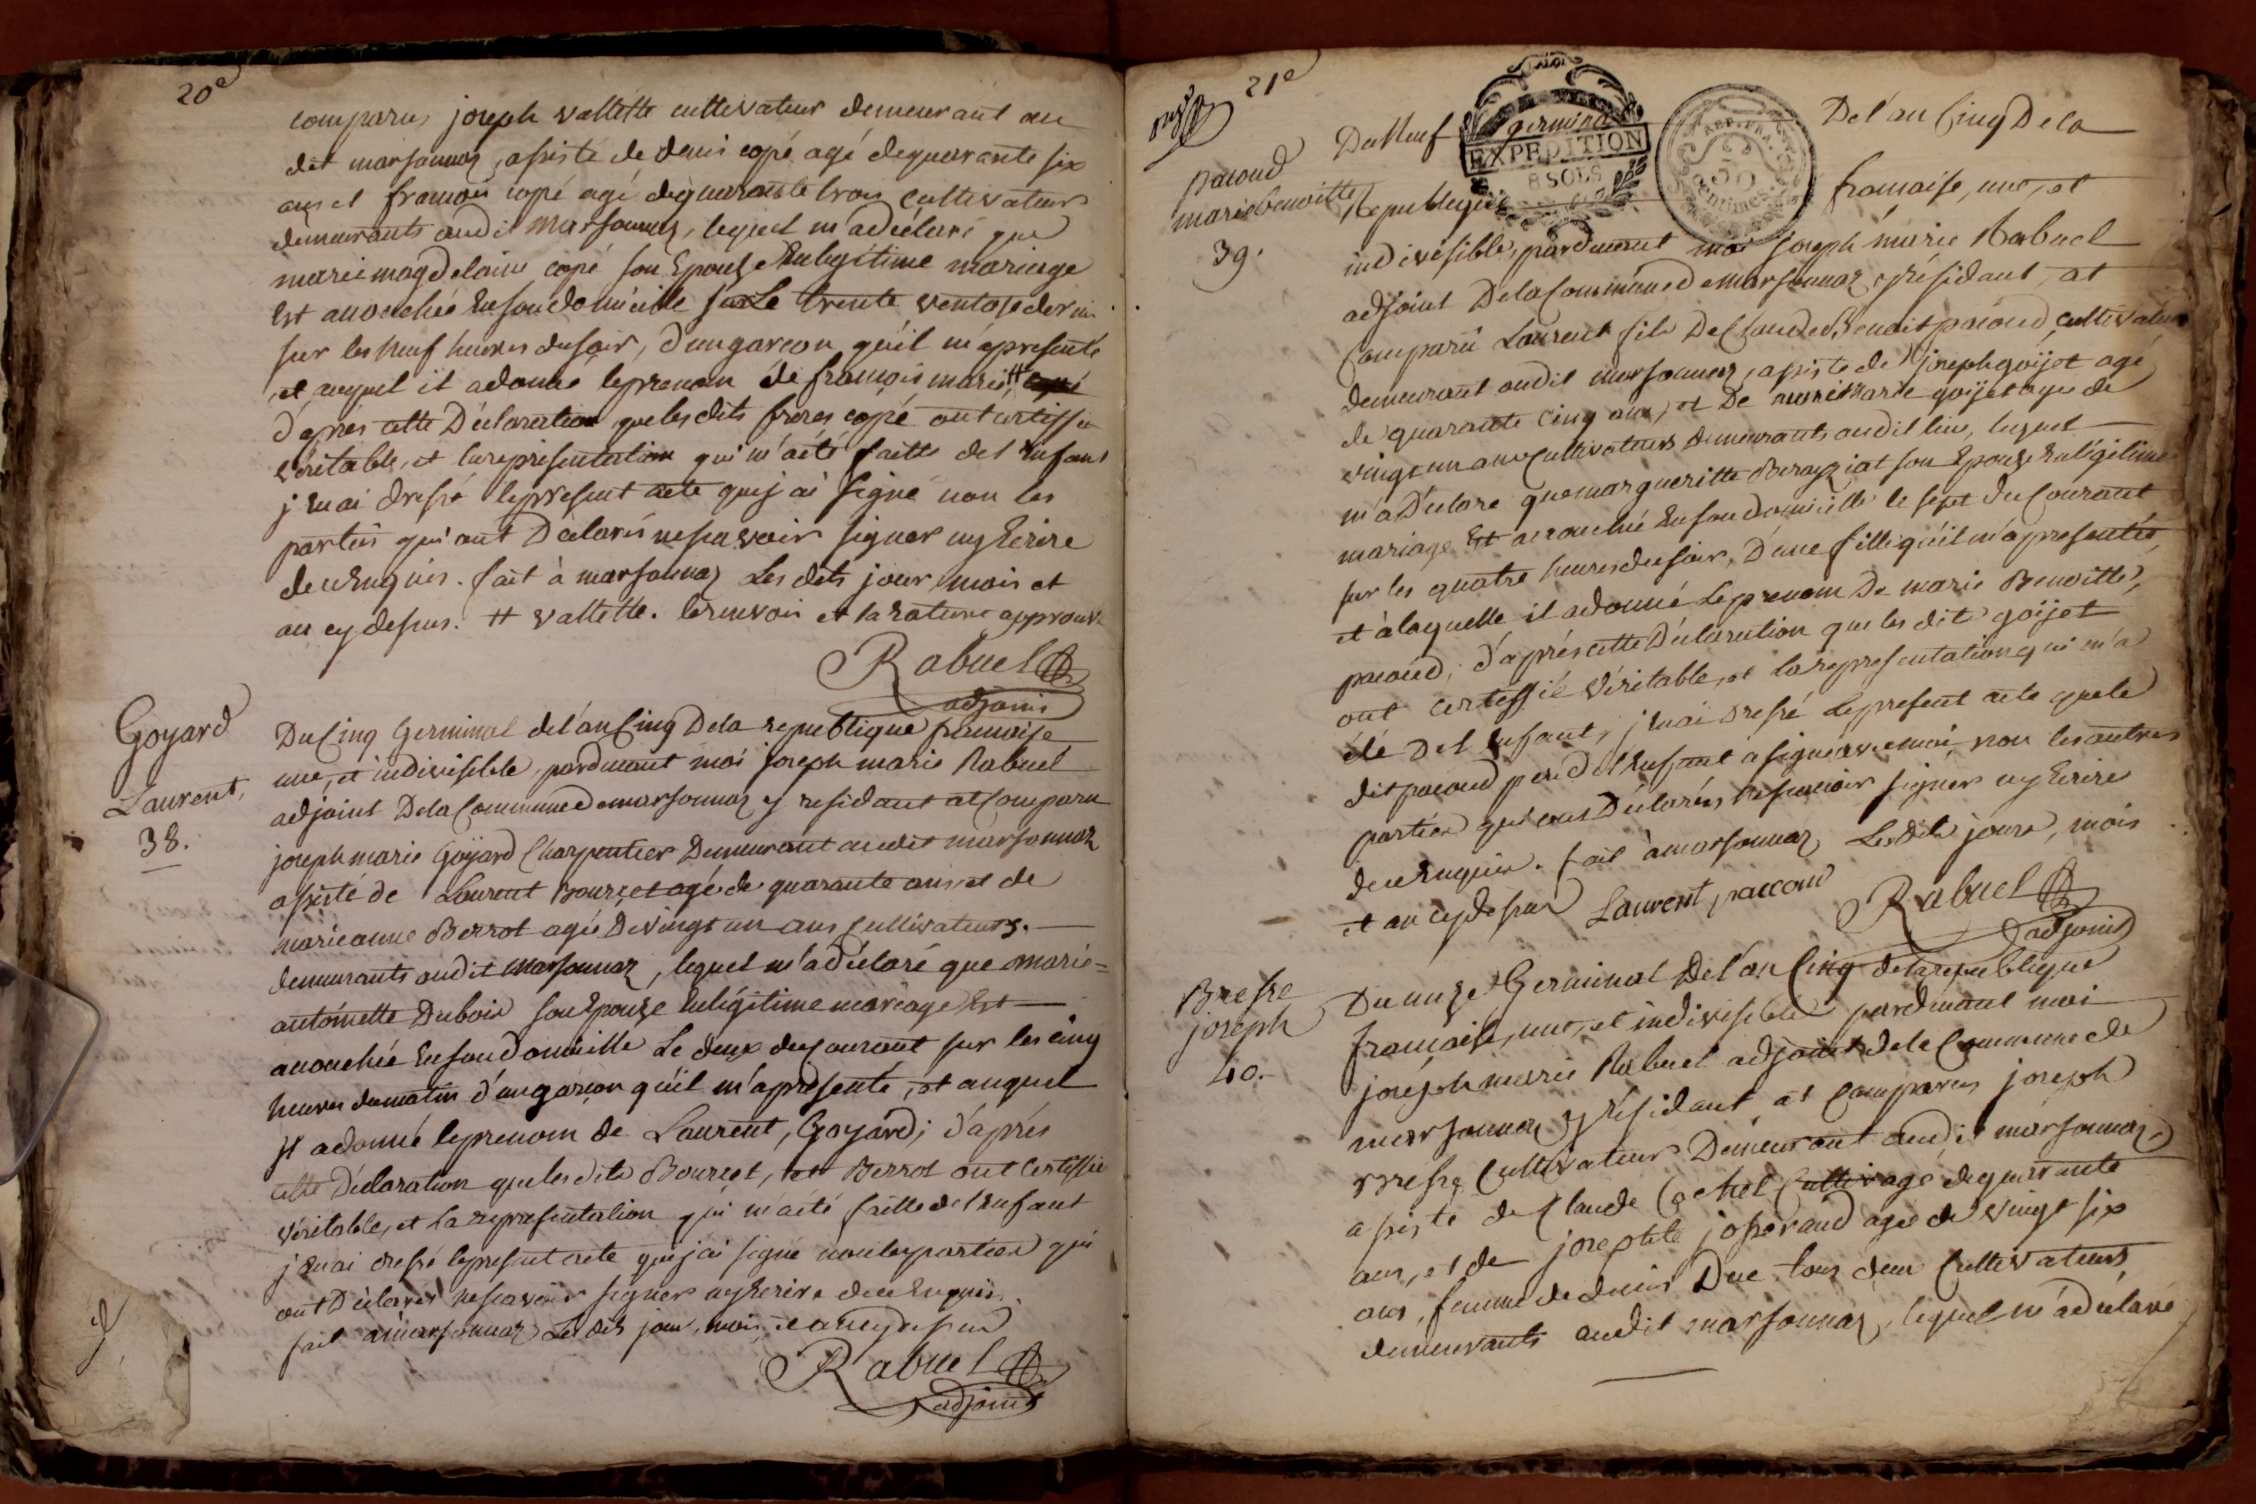 20e
comparu, joseph vallette cultivateur demeurant au
dit marsonnaz, assisté de denis copé agé de quarante six
ans et francois copé agé de quarante trois cultivateurs
demeurants audit Marsonnaz, lequel m'a déclaré que
marie magdelaine copé son Epouze En légitime mariage
Est accouchée En son domicille sur Le trente ventose dernier
sur les neuf heures du soir, d'un garcon qu'il m'a presenté
et auquel il a donné le prenom de francois marie, #
d'après cette Déclaration que les dits freres copé ont certiffié
véritable, et la representation qui m'a été faitte de l'Enfant
j'En ai dressé le present acte que j'ai signé non les
parties qui ont Déclarés ne scavoir signer ny Ecrire
de ce Enquis. fait à marsonnaz Les dits jour, mois et
an cy dessus. # vallette. le renvoi et la rature approuvé
Rabuel
adjoint
Goyard
Laurent,
38.
Du Cinq Germinal de l'an Cinq De la republique francaise
une, et indivisible, pardevant moi joseph marie Rabuel
adjoint De la Commune de marsonnaz y residant at Comparu
joseph marie Goyard Charpentier Demeurant audit marsonnaz
assisté de Laurent Bourcet agé de quarante ans et de
marie anne Berrot agée De vingt un ans Cultivateurs.
demeurants audit marsonnaz, lequel m'a déclaré que marie=
antoinette Dubois son Epouze En légitime mariage Est
accouchée En son domicille Le deux du Courant sur les cinq
heures du matin d'un garcon qu'il m'a presenté, et auquel
Il a donné le prenom de Laurent, Goyard; d'après
cette Déclaration que les dits Bourcet, et Berrot ont Certiffié
véritable, et La representation qui m'a été faitte de l'Enfant
j'En ai dressé le present acte que j'ai signé non les parties qui
ont Déclarés ne scavoir signer ny Ecrire de ce Enquis.
fait à marsonnaz Les dits jour, mois, et an cy dessus
Rabuel
adjoint
21e
EXPEDITION
8 SOLS
REP. FRA.
50
centimes
pacoud
marie benoitte
39.
Du Neuf germinal De l'an Cinq De la
Republique francaise, une, et
indivisible, pardevant moi joseph marie Rabuel
adjoint De la Commune de marsonnaz y résidant, at
Comparu Laurent fils De Claude Benoit pacoud cultivateur
demeurant audit marsonnaz, assisté de joseph goÿet agé
de quarante cinq ans, et De goÿet agée de
vingt un ans Cultivateurs demeurants audit lieu, lequel
m'a Déclaré que margueritte son Epouze En légitime
mariage Est accouchée En son domicille le sept du Courant
sur les quatre heures du soir, D'une fille qu'il m'a presentée,
et à laquelle il a donné Le prenom De marie Benoitte,
pacoud, d'après cette Déclaration que les dits goÿet
ont certiffié véritable, et la representation qui m'a
été De l'Enfant, j'En ai dressé Le present acte que le
dit pacoud pere de l'Enfant a signé avec moi, non les autres
parties qui ont Déclarés ne scavoir signer ny Ecrire
de ce Enquis. fait à marsonnaz Les dits jours, mois
et an cy dessus
Laurent paccoud
Rabuel
adjoint
Bresse
joseph
40.
Du unze Germinal De l'an Cinq de la republique
francaise, une, et indivisible pardevant moi
joseph marie Rabuel adjoint de la Commune de
marsonnaz y résidant, at Comparu, joseph
Bresse Cultivateur Demeurant audit marsonnaz,
assisté de Claude Cochet agé de quarante
ans, et de josephte josserand agée de vingt six
ans, femme de denis Duc tous deux Cultivateurs
demeurants audit marsonnaz, lequel m'a déclaré